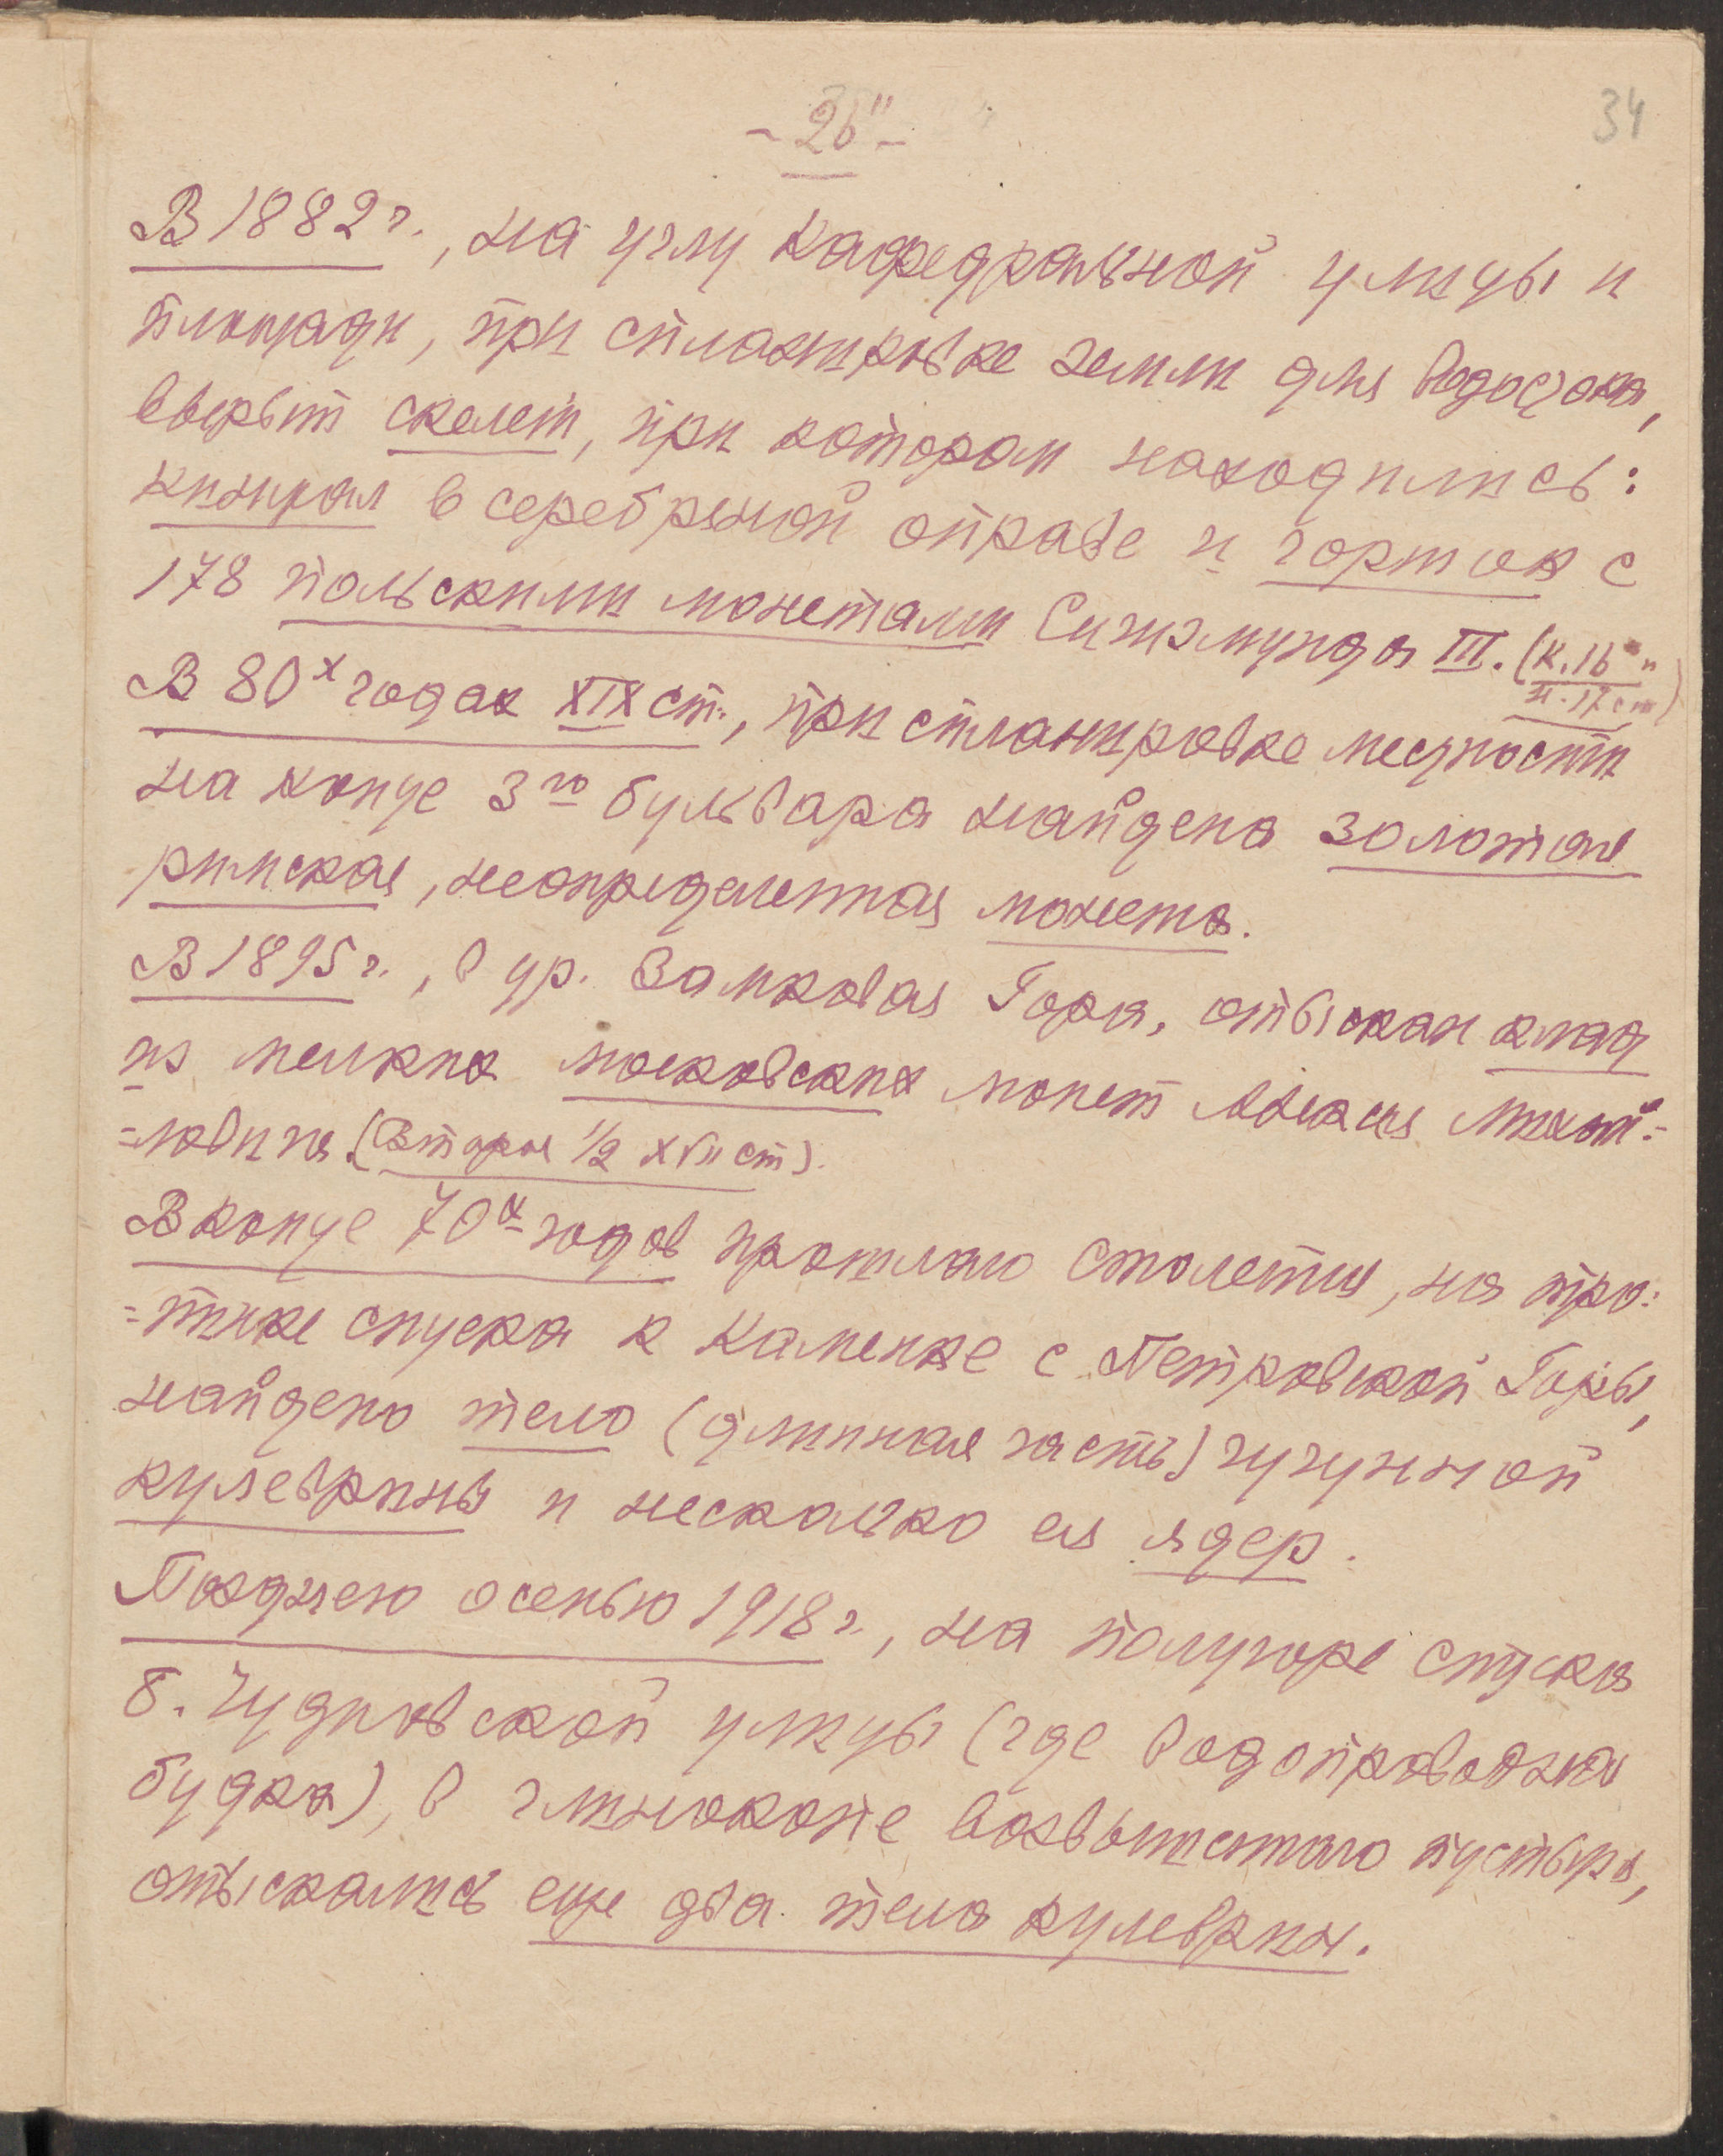 - 26" -
34
В 1882 г., на углу Кафедральной улицы и
площади, при спланировке земли для водостока,
вырыт скелет, при котором находились:
кинжал в серебряной оправе и горшок с
178 польскими монетами Сигизмунда III. (к. 16 и
н. 17 ст)
В 80х годах XIX ст., при спланировке местности
на конце 3го бульвара найдена золотая
римская, неопределенная монета.
В 1895 г., в ур. Замковая Гора, отыскан клад
из мелких московских монет Алексея Михай=
=ловича. (Вторая 1/2 XVII ст).
В конце 70х годов прошлаго столетия, на тро=
=пинке спуска к Каменке с Петровской Горы,
найдено тело (длинная часть) чугунной
кулеврины и несколько ея ядер.
Позднею осенью 1918 г., на полугоре спуска
б. Чудновской улицы (где водопроводная
будка), в глинокопе возвышенного пустыря,
отыскались еще два тела кулеврин.